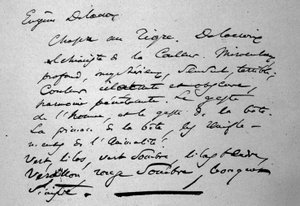 Eugène Delacroix
Chasse au Tigre. Delacroix
alchimiste de la Couleur. Miraculeux,
profond, mystérieux, sensuel, terrible;
Couleur éclatante et obscure,
harmonie pénétrante. Le geste
de l'homme, et le geste de la bête.
La grimace de la bête, les
de l'Animalité.
Vert, lilas, vert sombre, lilas
Vermillon, rouge sombre, bouquet